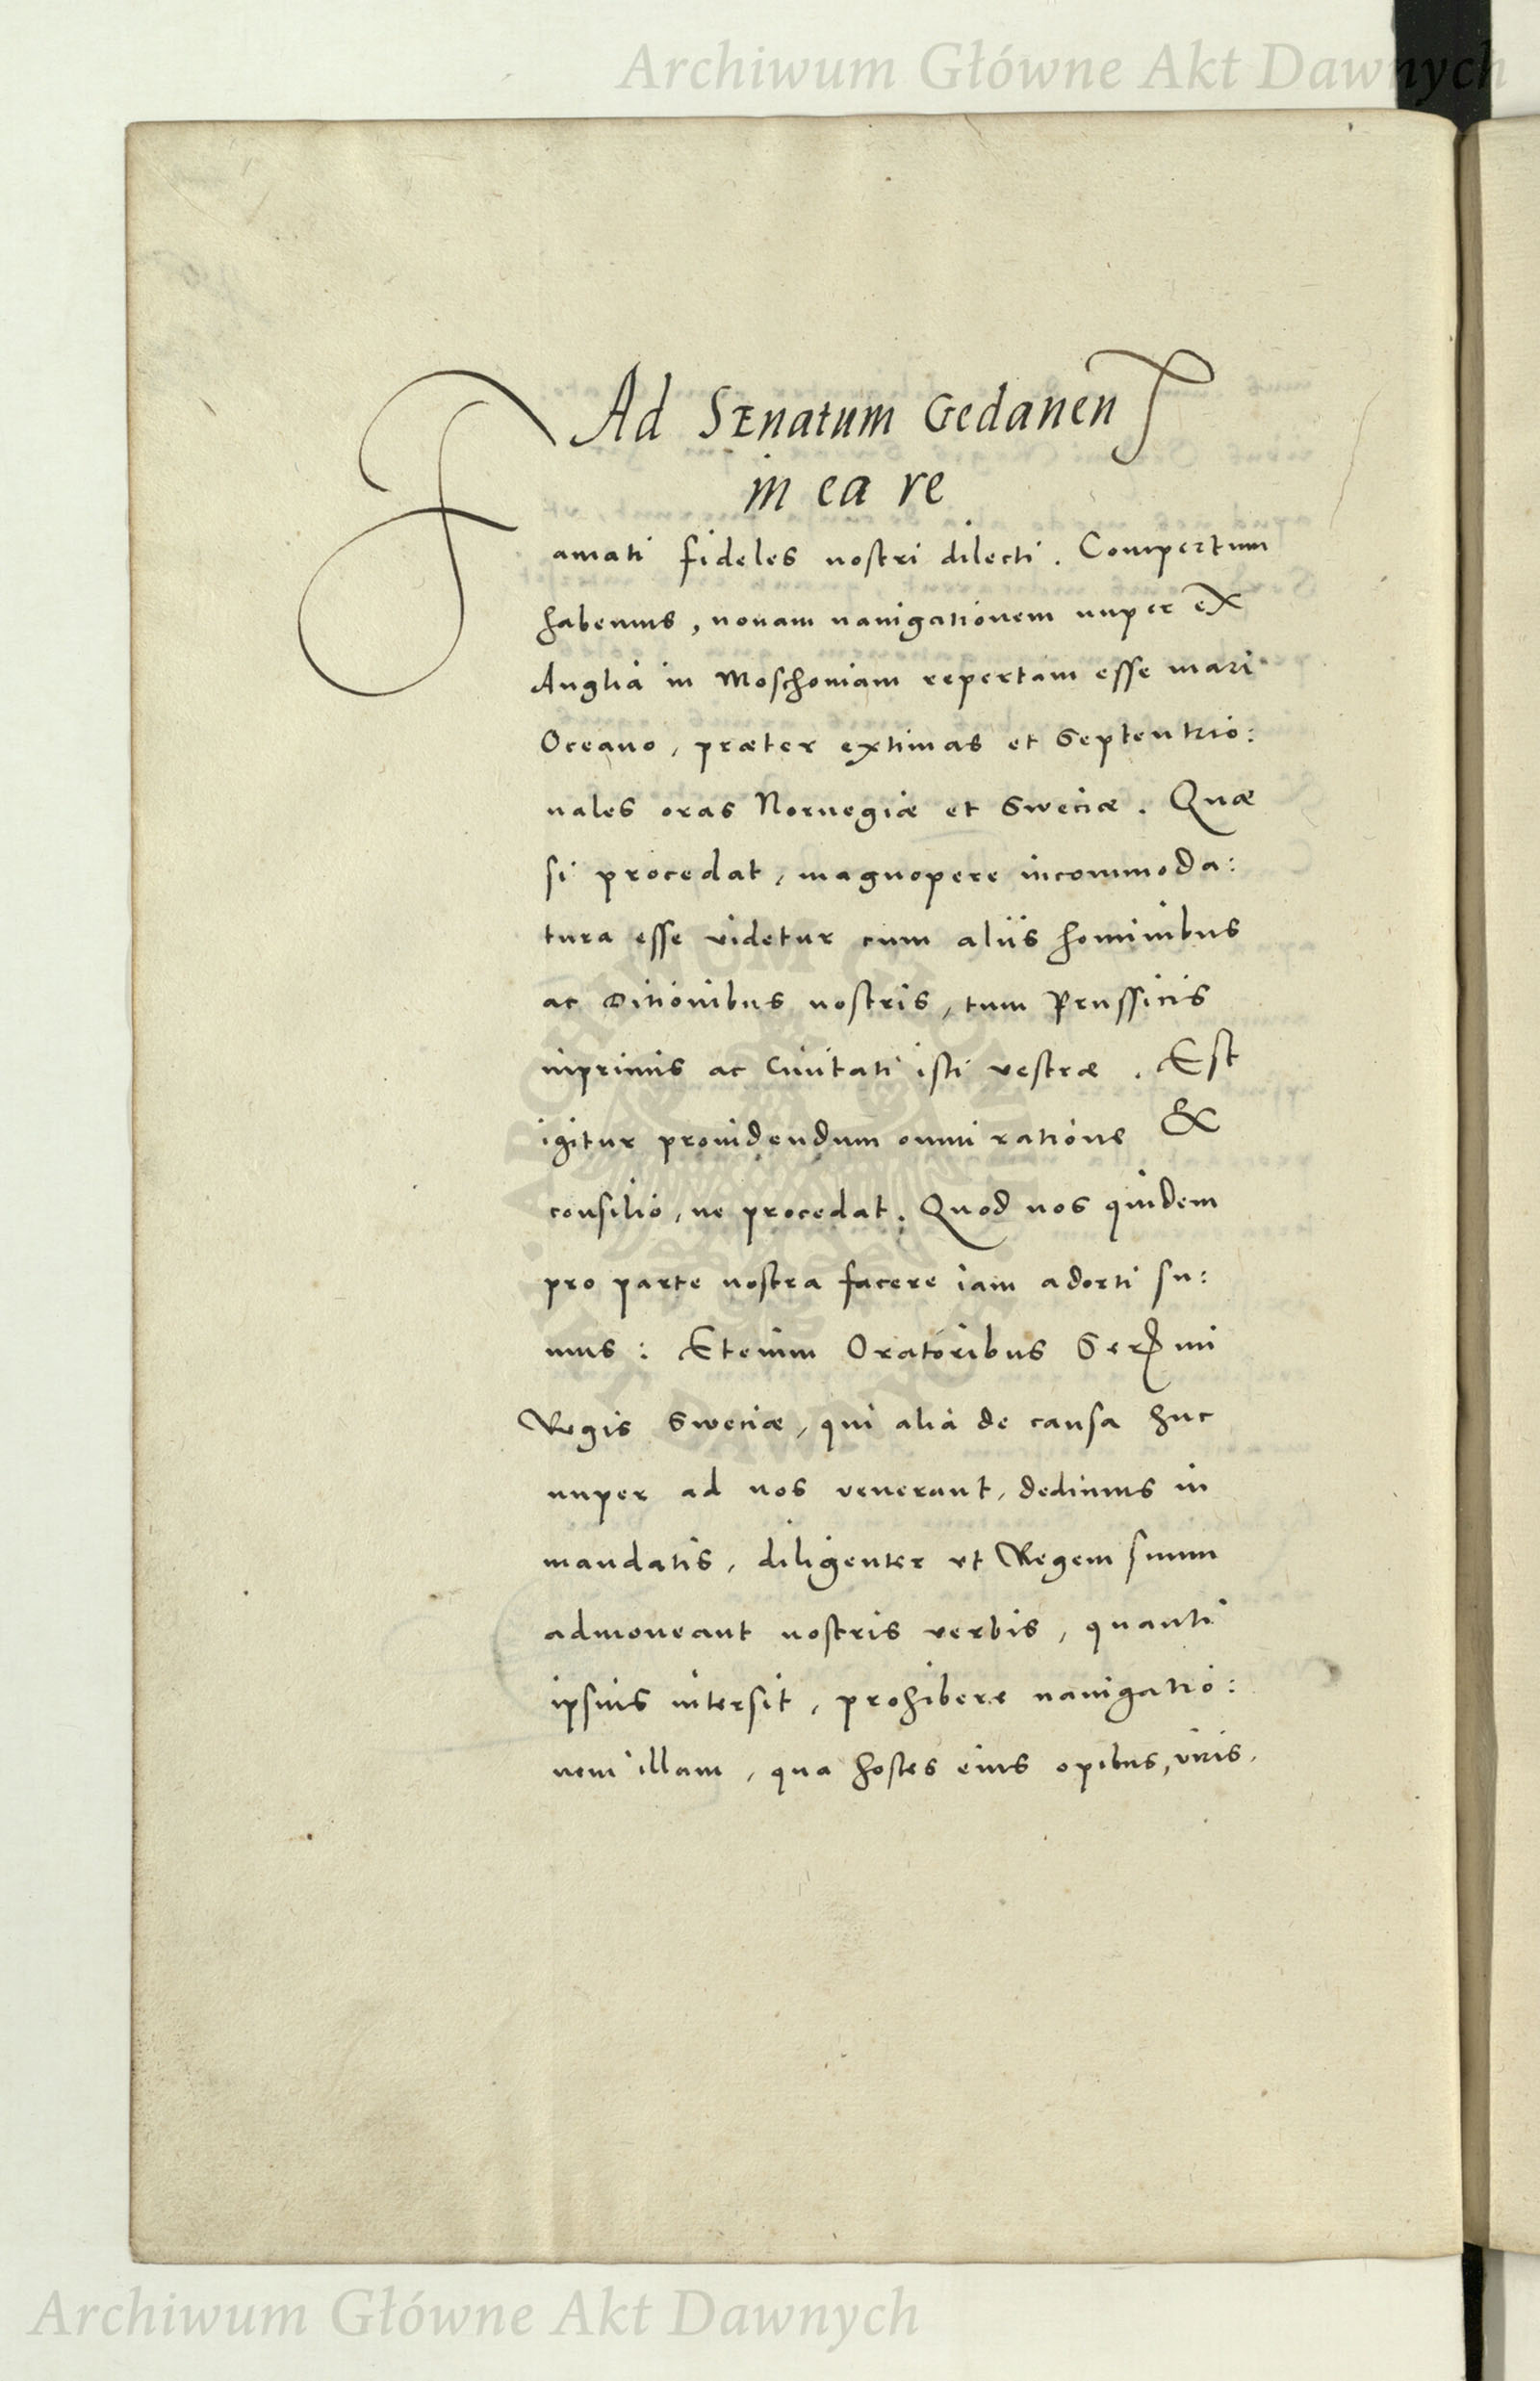 Archiwum Główne Akt Dawnych
Ad Senatum Gedanen
in ea re
Famati fideles nostri dilecti. Compertum
habemus, nouam nauigationem nuper ex
Anglia in Moschouiam repertam esse mari
Oceano, præter extimas et Septentrio:
nales oras Noruegiæ et Sweciæ. Quæ
si procedat, magnopere incommoda:
tura esse videtur cum aliis hominibus
ac Ditionibus nostris, tum Prussicis
inprimis ac Ciuitati isti vestræ. Est
igitur prouidendum omni ratione &
consilio, ne procedat. Quod nos quidem
pro parte nostra facere iam adorti su:
mus: Etenim Oratoribus Sermi
Regis Sweciæ, qui alia de causa huc
nuper ad nos venerant, dedimus in
mandatis, diligenter vt Regem suum
admoneant nostris verbis, quanti
ipsius intersit, prohibere nauigatio:
nem illam, qua hostes eius opibus, viris,
Archiwum Główne Akt Dawnych